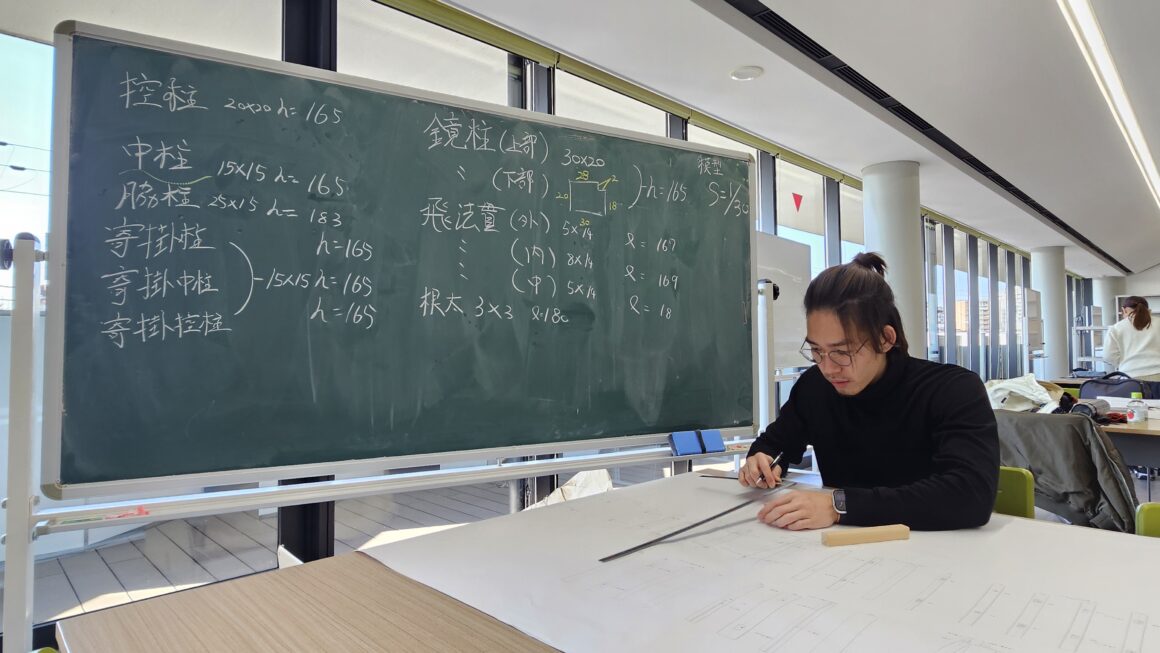 控柱 20×20 h=165
中柱 15×15 h=165
脇柱 25×15 h= 183
寄掛柱 h=165
寄掛中柱 15×15 h=165
寄掛控柱 h=165
鏡柱(上部) 30×20
〃 (下部) 28 2 20 18 30 h=165
飛法貫(外) 5×14 ℓ= 167
〃 (内) 8×14 ℓ= 169
〃 (中) 5×14 ℓ= 18
根太 3×3 ℓ=180
模型
S=1/30